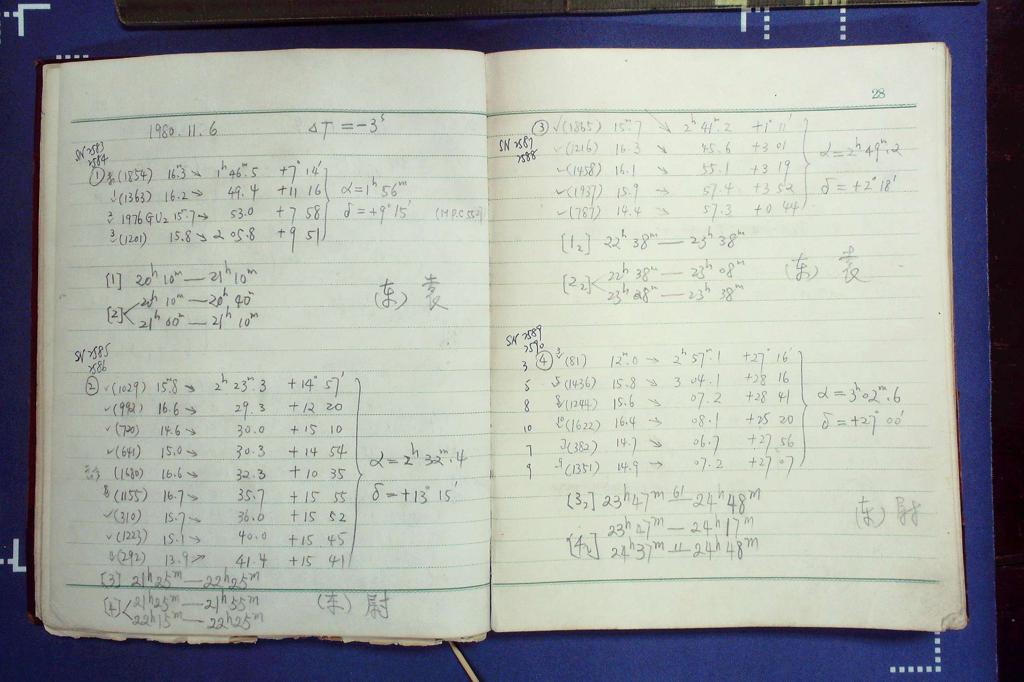 1980.11.6 ΔT = -3ˢ
SN 2583
2584
① (1854) 16ᵐ.3 → 1ʰ 46ᵐ.5 +7° 14′
(1363) 16.2 → 49.4 +11 16 α=1ʰ 56ᵐ
1976 GU₂ 15.7 → 53.0 +7 58 δ = +9° 15′
(1201) 15.8 → 2 05.8 +9 51
[1] 20ʰ 10ᵐ — 21ʰ 10ᵐ
[2] 20ʰ 10ᵐ — 20ʰ 40ᵐ
21ʰ 00ᵐ — 21ʰ 10ᵐ
(东) 袁
SN 2585
2586
② (1029) 15ᵐ.8 → 2ʰ 23ᵐ.3 +14° 57′
(992) 16.6 → 29.3 +12 20
(720) 14.6 → 30.0 +15 10
(641) 15.0 → 30.3 +14 54
(1680) 16.6 → 32.3 +10 35 α=2ʰ 32ᵐ.4
(1155) 16.7 → 35.7 +15 55 δ = +13° 15′
(310) 15.7 → 36.0 +15 52
(1223) 15.1 → 40.0 +15 45
(292) 13.9 → 41.4 +15 41
[3] 21ʰ25ᵐ — 22ʰ25ᵐ
[4] 21ʰ25ᵐ — 21ʰ55ᵐ
22ʰ15ᵐ — 22ʰ25ᵐ
(东) 尉
28
SN 2587
2588
③ (1865) 15ᵐ.7 → 2ʰ 41ᵐ.2 +1° 11′
(1216) 16.3 → 45.6 +3 01
(1458) 16.1 → 55.1 +3 19 α=2ʰ 49ᵐ.2
(1937) 15.9 → 57.4 +3 52 δ = +2° 18′
(787) 14.4 → 57.3 +0 44
[1₂] 22ʰ 38ᵐ — 23ʰ 38ᵐ
[2₂] 22ʰ 38ᵐ — 23ʰ 08ᵐ
23ʰ 28ᵐ — 23ʰ 38ᵐ
(东) 袁
SN 2589
2590
3 ④ (81) 12ᵐ.0 → 2ʰ 57ᵐ.1 +27° 16′
5 (1436) 15.8 → 3 04.1 +28 16
8 (1244) 15.6 → 07.2 +28 41 α=3ʰ02ᵐ.6
10 (1622) 16.4 → 08.1 +25 20 δ = +27° 00′
7 (382) 14.7 → 06.7 +27 56
9 (1351) 14.9 → 07.2 +27 07
[3₂] 23ʰ47ᵐ — 61 24ʰ 48ᵐ
[4₂] 23ʰ47ᵐ — 24ʰ17ᵐ
24ʰ37ᵐ — 11 24ʰ48ᵐ
(东) 尉